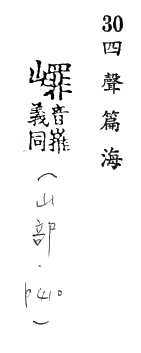 30四聲篇海
嶵音摧
義同
(山部.p410)